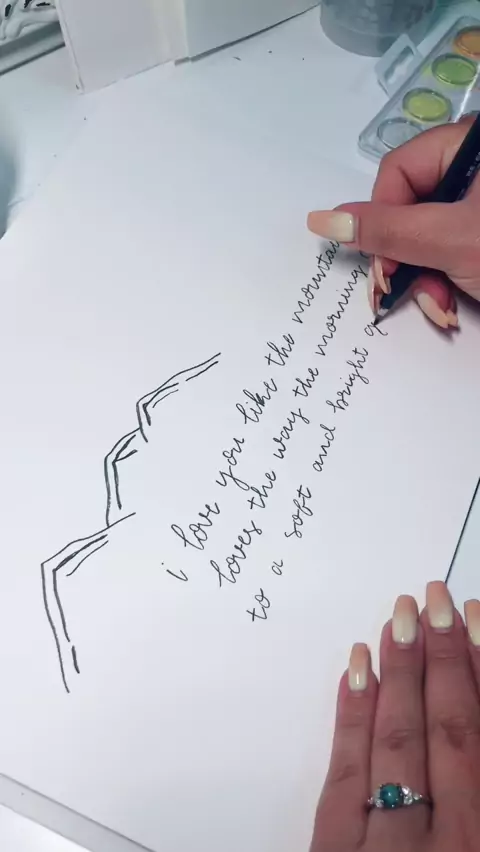 i love you like the
loves the way the morning
to a soft and bright